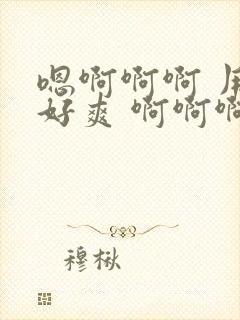 嗯啊啊啊
好爽 啊啊
穆楸